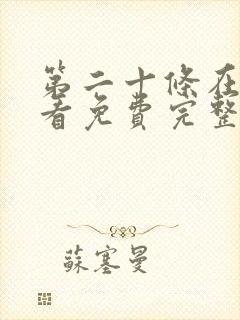 第二十條在
看免費完整
蘇塞曼